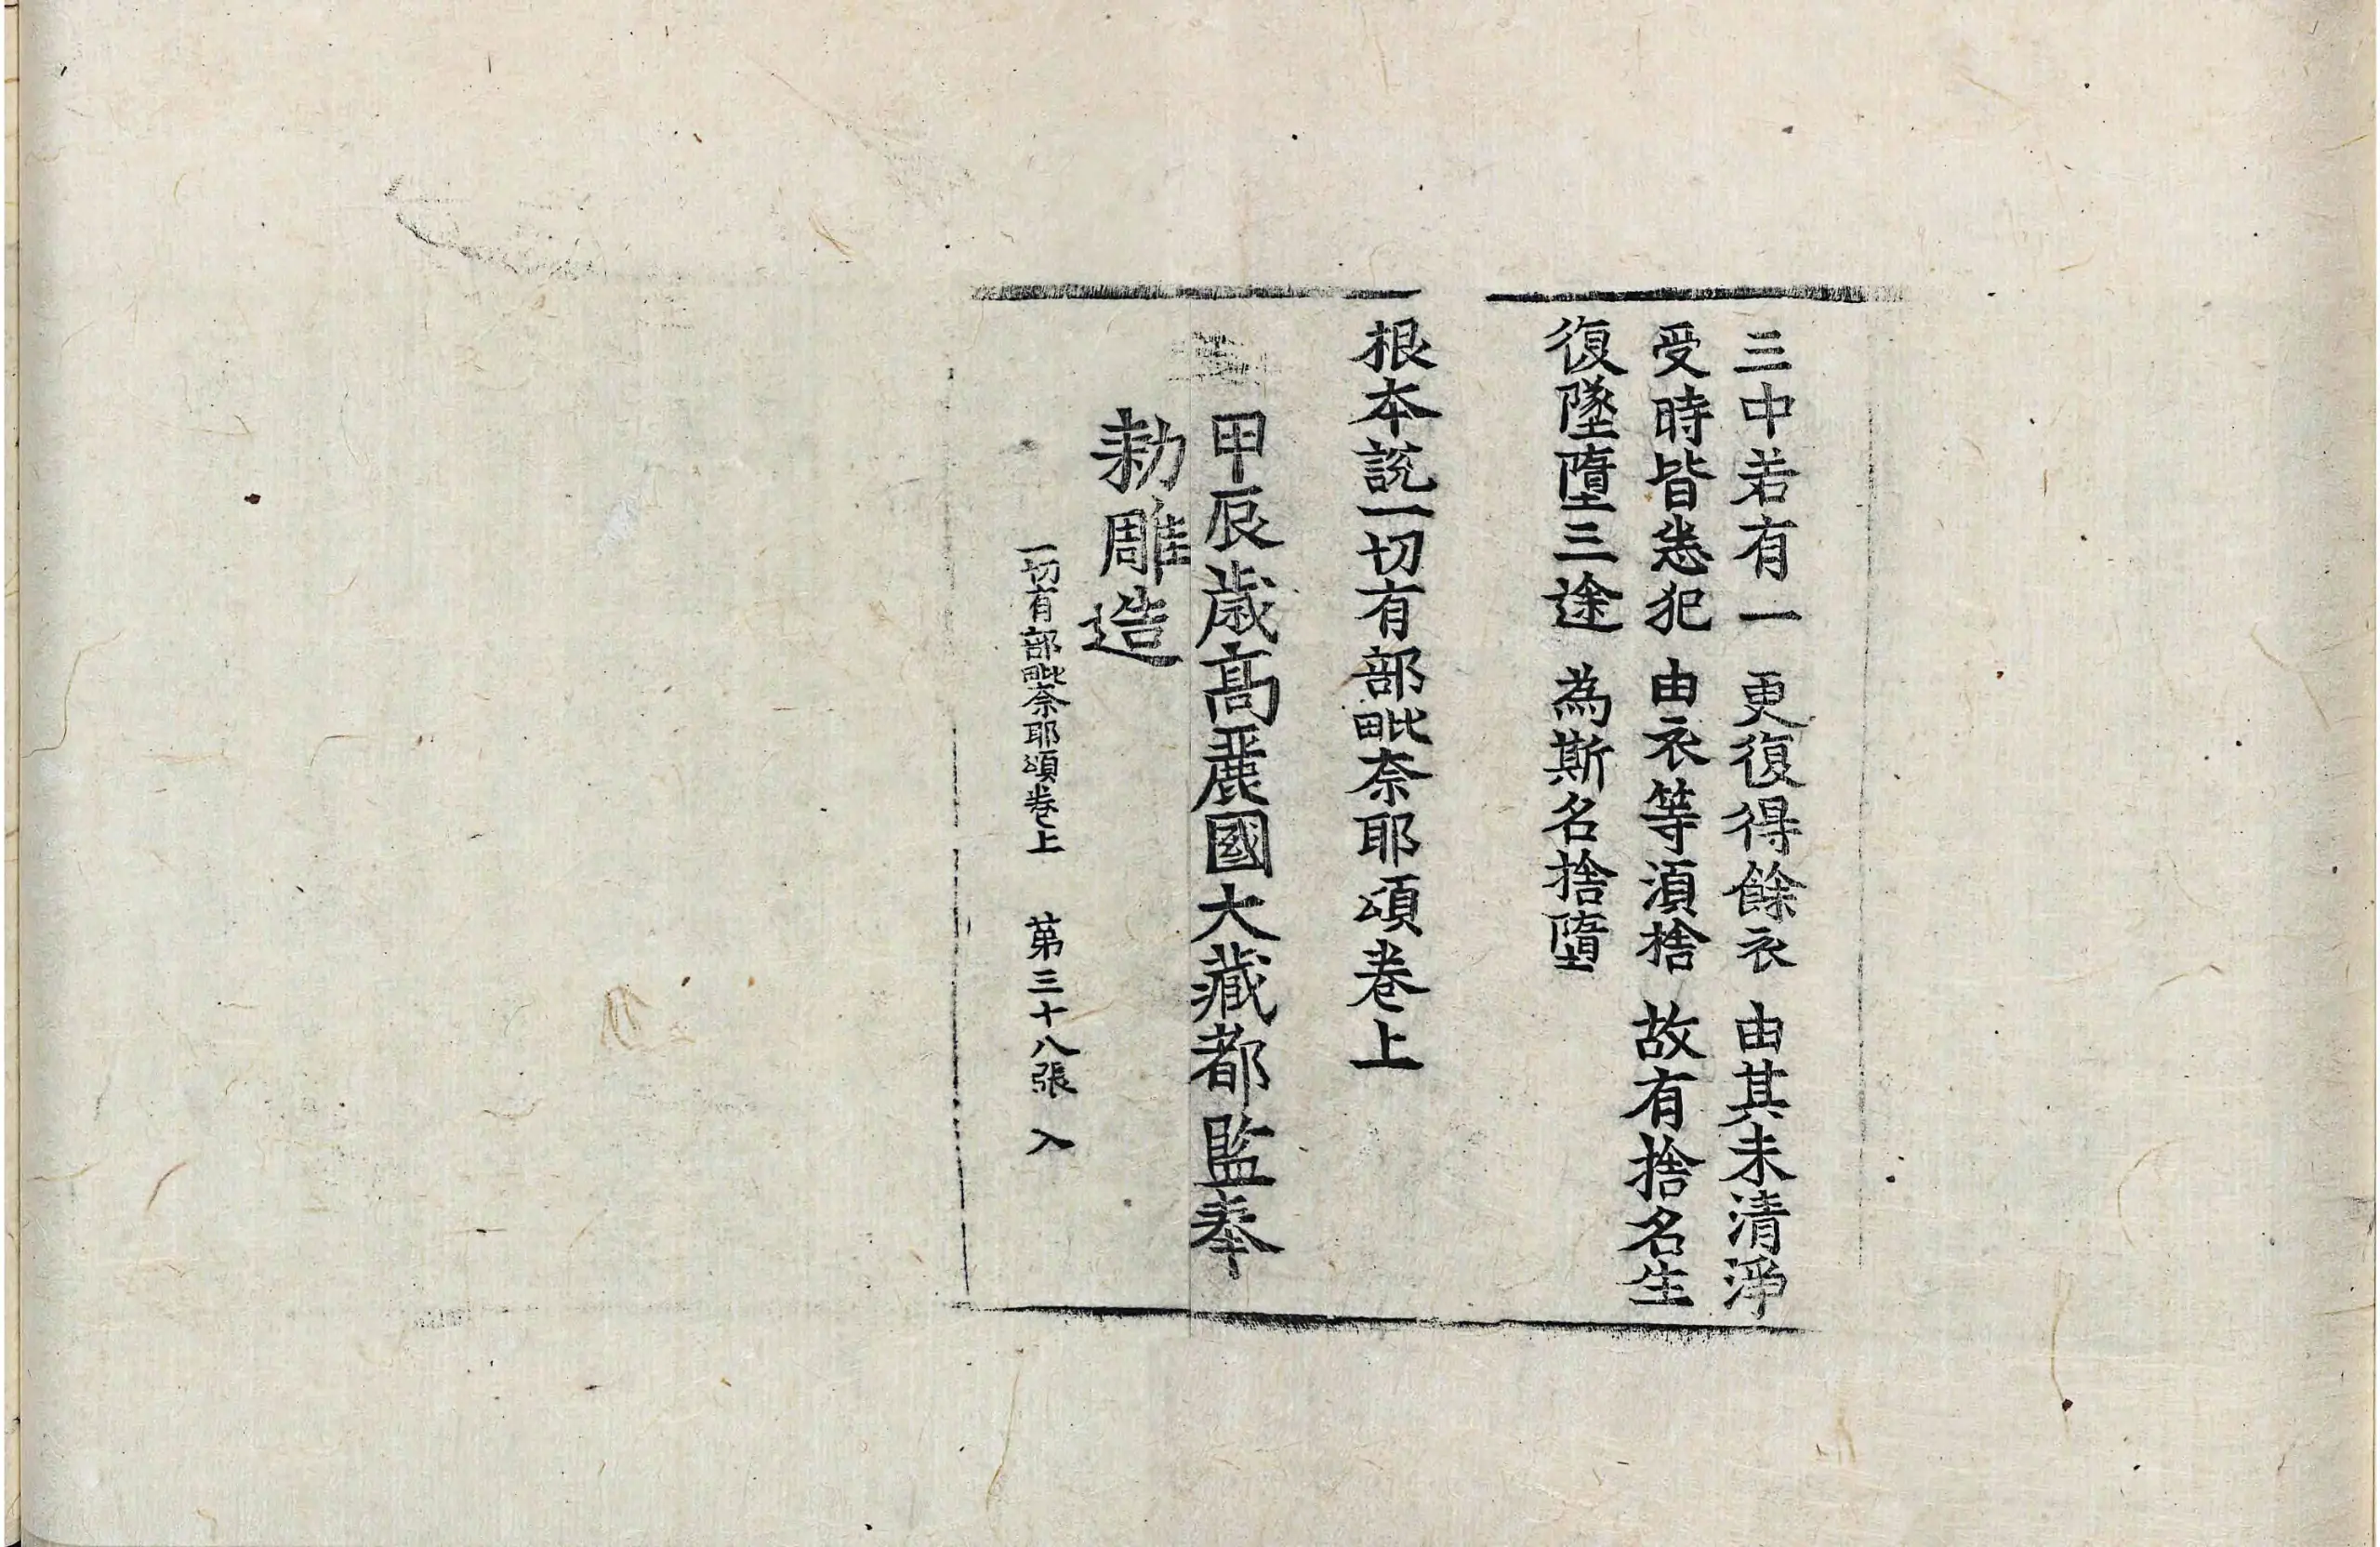 三中若有一 更復得餘衣 由其未清淨
受時皆悉犯 由衣等須捨 故有捨名生
復墜墮三途 為斯名捨墮
根本說一切有部毗奈耶頌卷上
甲辰歲高麗國大藏都監奉
勅雕造
一切有部毗奈耶頌卷上 第三十八張 入